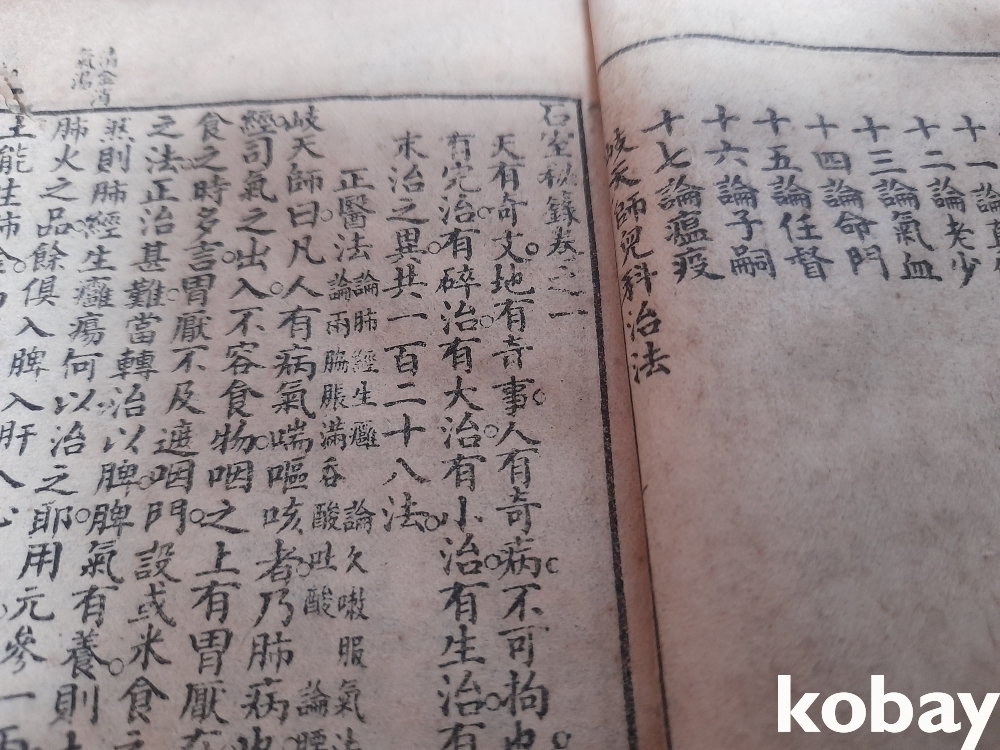 十二論老少
十三論氣血
十四論命門
十五論任督
十六論子嗣
十七論瘟疫
岐天師兒科治法
石室秘錄卷之一
天有奇文。地有奇事。人有奇病。不可拘也。
有完治。有碎治。有大治。有小治。有生治。有
末治之異共一百二十八法。
正醫法
論肺經生癰 論久嗽服氣法
論兩脇脹滿吞酸吐酸 論腰
岐天師曰。凡人有病氣喘嘔咳者。乃肺病也
經司氣之出入。不容食物。咽之上有胃厭在
食之時多言。胃厭不及遮咽門。設或米食之
之法。正治甚難。當轉治以脾。脾氣有養。則
然則肺經生癰瘍。何以治之耶。用元參一兩
肺火之品。餘俱入脾入肝入心
土能生肺金
清金消
氣湯
kobay